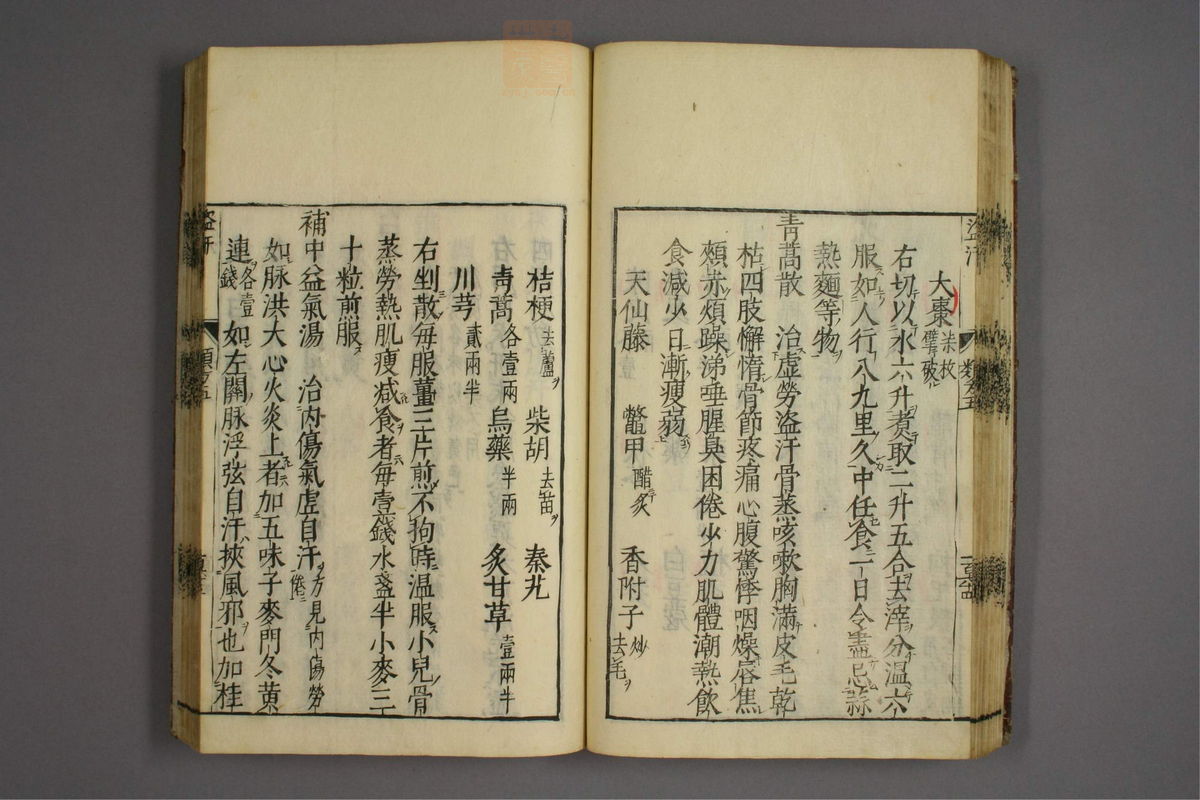 大棗 柒枚 擘破
右切以水六升煮取二升五合去滓分温六
服如人行八九里久中任食一日令盡忌蒜
熱麵等物
青蒿散 治虚勞盜汗骨蒸咳嗽胸滿皮毛乾
枯四肢懈惰骨節疼痛心腹驚悸咽燥唇焦
頰赤煩躁涕唾腥臭困倦少力肌體潮熱飲
食减少日漸瘦弱
天仙藤 鼈甲 醋炙 香附子 炒去毛
桔梗 去蘆 柴胡 去苗 秦艽
靑蒿 各壹兩 烏藥 半兩 炙甘草 壹兩半
川芎 貳兩半
右剉散每服薑三片煎不拘時温服小兒骨
蒸勞熱肌瘦减食者每壹錢水盞半小麥三
十粒煎服
補中益氣湯 治内傷氣虚自汗 方見内傷勞倦
如脉洪大心火炎上者加五味子麥門冬黄
連 各壹錢 如左關脉浮弦自汗挾風邪也加桂
盜汗
類方五
盜汗